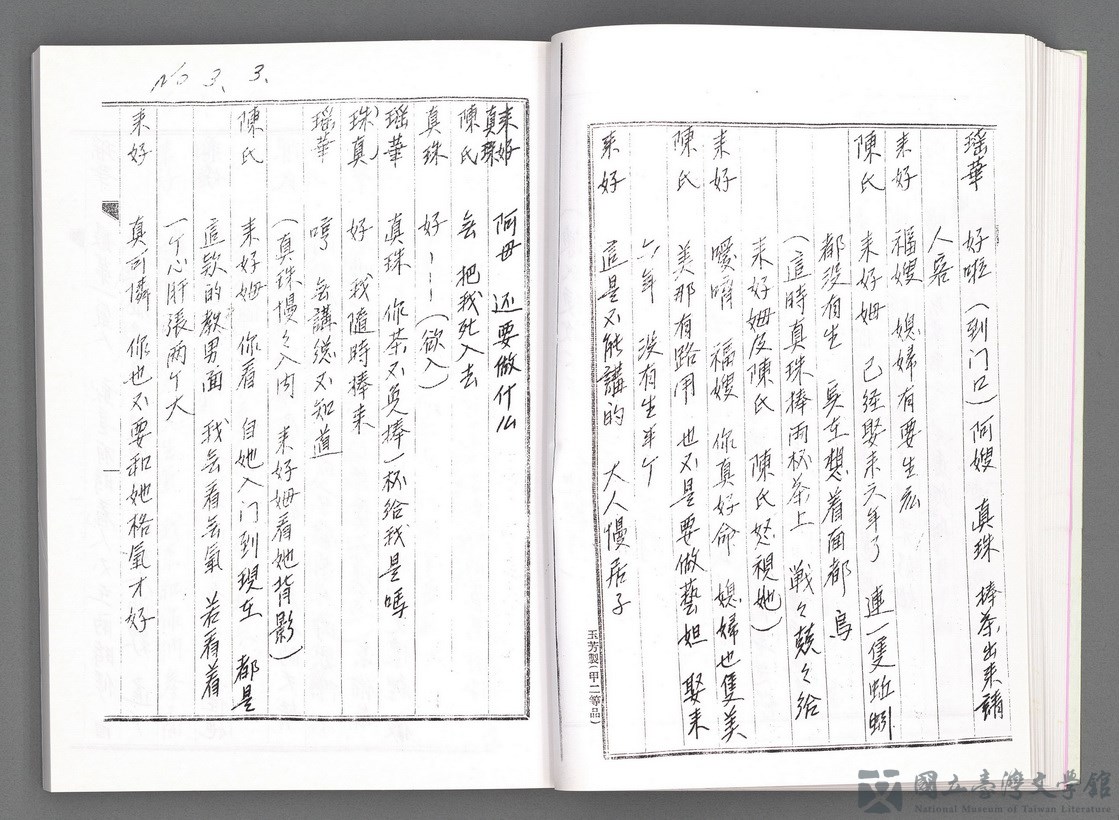 瑶華 好啦(到门口)阿嫂 真珠 捧茶出来請
人客
来好 福嫂 媳婦有要生広
陳氏 来好姆 己経娶来六年了 連一隻蚯蚓
都没有生 臭在想着面都 烏
(這時真珠捧両杯茶上 戦々競々给
来好姆及陳氏 陳氏怒視她)
来好 嗳唷 福嫂 你真好命 媳婦也隻美
陳氏 美那有路用 也不是要做藝妲 娶来
六年 没有生半个
来好 這是不能講的 大人慢居子
玉芳製(甲二等品)
No 3、3、
来好 真珠 阿母 还要做什么
陳氏 去 把我死入去
真珠 好———(欲入)
瑶華 真珠 你茶不免捧一杯给我是嗎
珠真 好 我隨時捧来
瑶華 哼 去講縂不知道
(真珠慢々入内 来好姆看她背影)
陳氏 来好姆 你看 自她入门到現在 都是
這款的教男面 我去看去氣 若看着
一个心肝張両个大
来好 真可憐 你也不要和她格氣才好
國立臺灣文學館
National Museum of Taiwan Literature